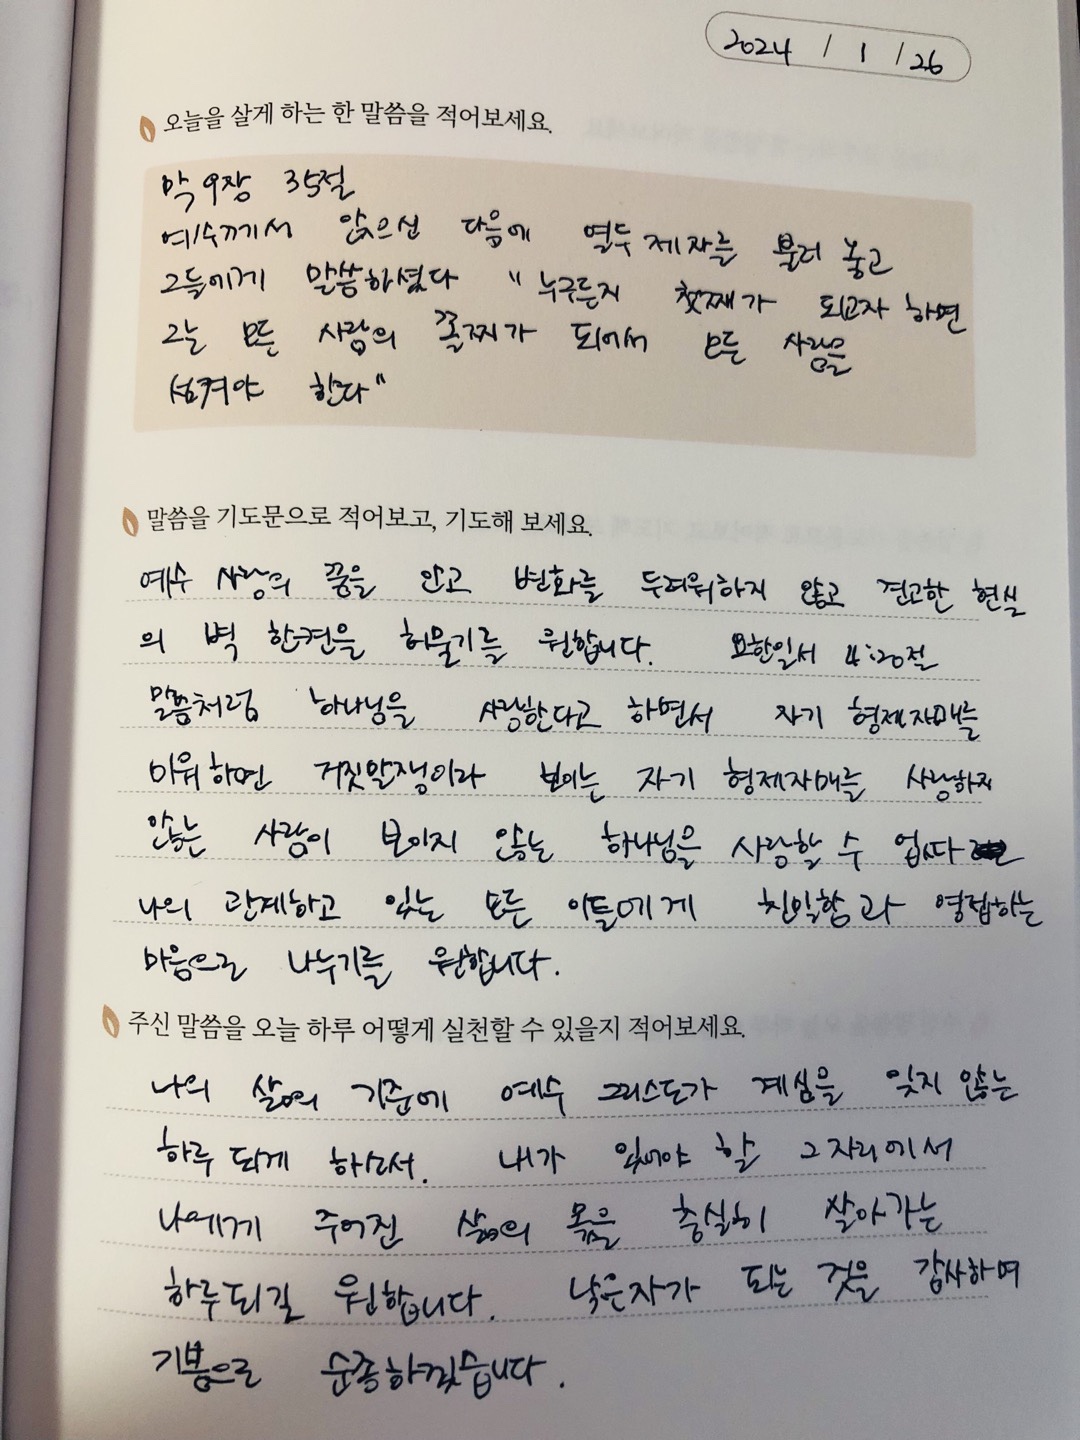 2024 / 1 / 26
오늘을 살게 하는 한 말씀을 적어보세요.
막 9장 35절
예수께서 앉으신 다음에 열두 제자를 불러 놓고
그들에게 말씀하셨다 "누구든지 첫째가 되고자 하면
그는 모든 사람의 꼴찌가 되어서 모든 사람을
섬겨야 한다"
말씀을 기도문으로 적어보고, 기도해 보세요.
예수 사랑의 꿈을 안고 변화를 두려워하지 않고 견고한 현실
의 벽 한켠을 허물기를 원합니다. 요한일서 4:20절
말씀처럼 하나님을 사랑한다고 하면서 자기 형제자매를
미워하면 거짓말쟁이라 보이는 자기 형제자매를 사랑하지
않는 사람이 보이지 않는 하나님을 사랑할 수 없다
나의 관계하고 있는 모든 이들에게 친밀함과 영접하는
마음으로 나누기를 원합니다.
주신 말씀을 오늘 하루 어떻게 실천할 수 있을지 적어보세요.
나의 삶의 기준에 예수 그리스도가 계심을 잊지 않는
하루 되게 하소서. 내가 있어야 할 그 자리에서
나에게 주어진 삶의 몫을 충실히 살아가는
하루되길 원합니다. 낮은자가 되는 것을 감사하며
기쁨으로 순종하겠습니다.